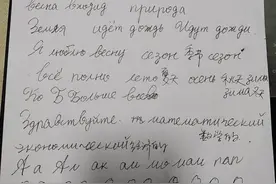 весна въезид природа
Земля идёт дождь Идут дожди
Я люблю весну сезон 季节 сезон
всё полно лето 夏天 осень 秋天 зима
По Б Больше всево 冬天
Здравствуйте. т математический
экономический 数学的
А а Ал ак ам мо мам пап